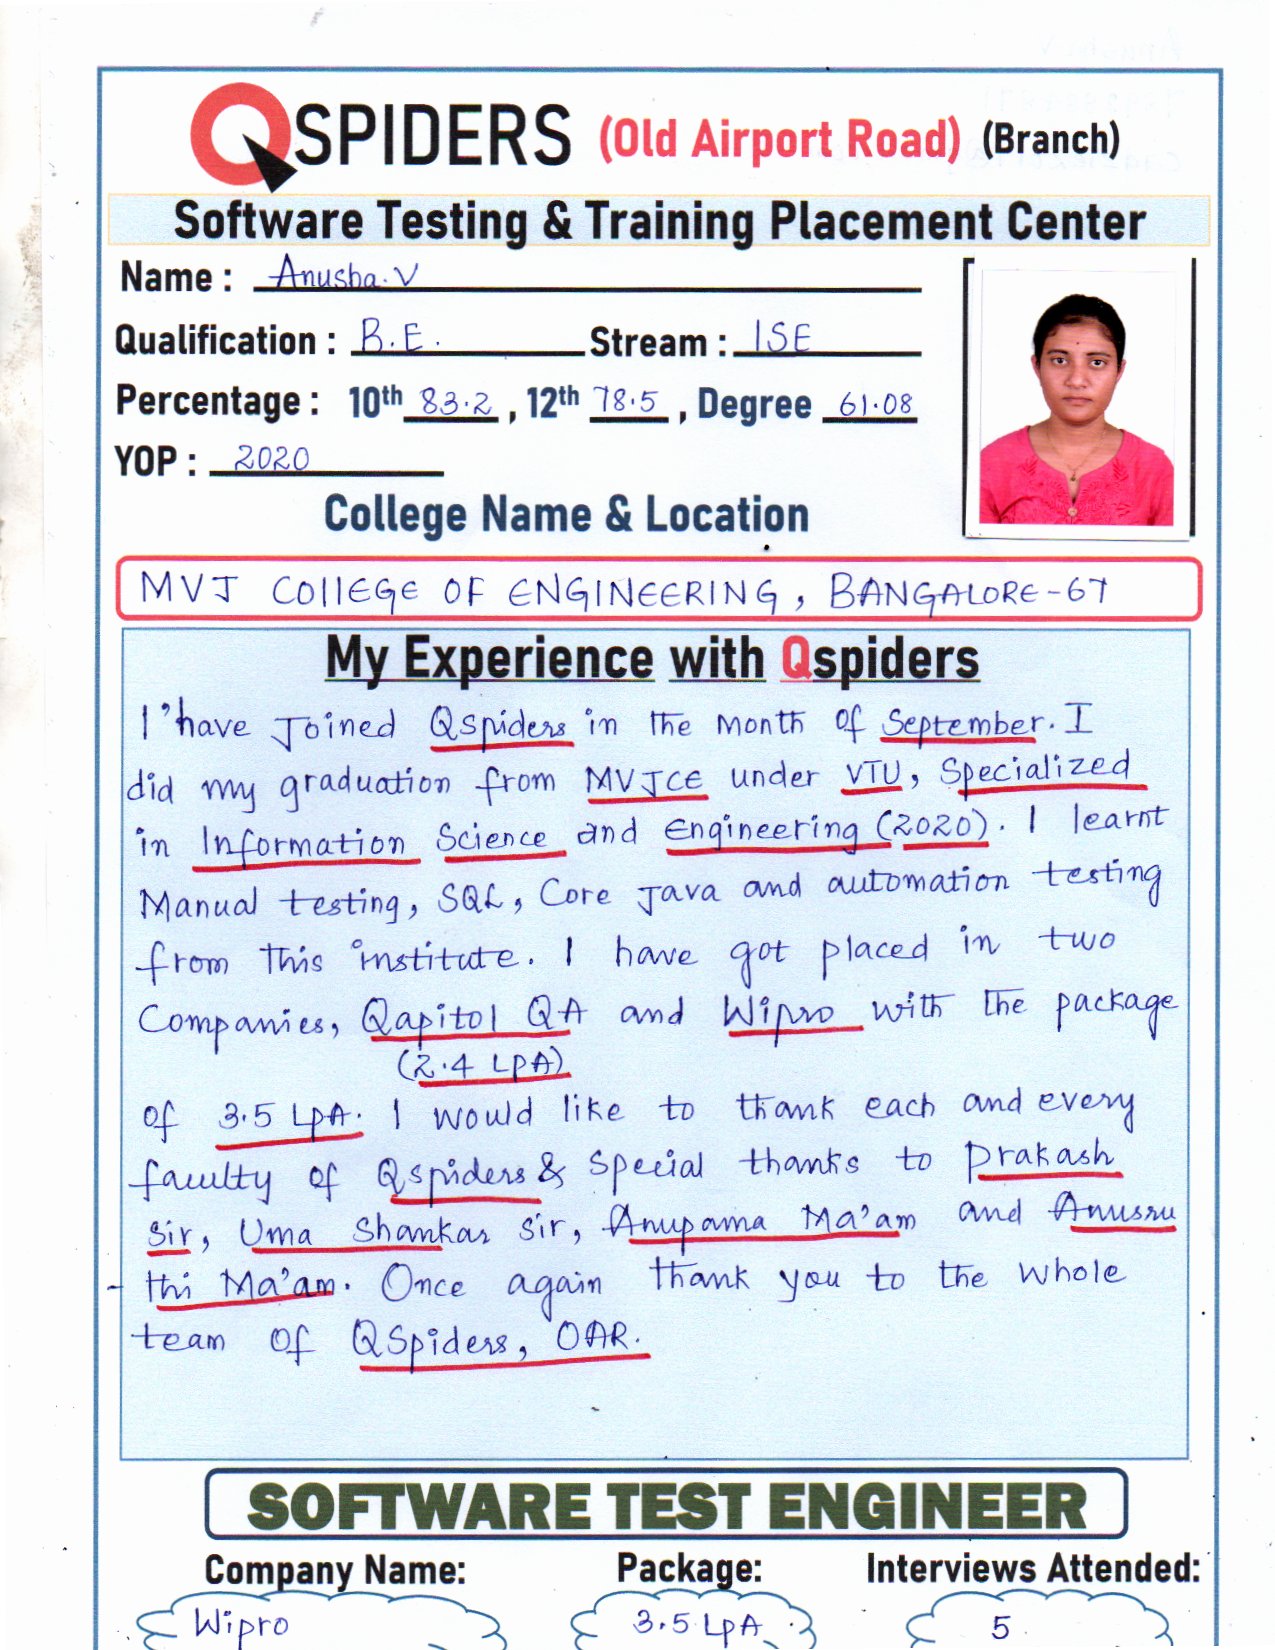 QSPIDERS (Old Airport Road) (Branch)
Software Testing & Training Placement Center
Name : Anusha.V
Qualification : B.E. Stream : ISE
Percentage : 10th 83.2 , 12th 78.5 , Degree 61.08
YOP : 2020
College Name & Location
MVJ COllEGE OF ENGINEERING, BANGALORE-67
My Experience with Qspiders
I'have Joined QSpiders in the month of September. I
did my graduation from MVJCE under VTU, Specialized
in Information Science and Engineering (2020). I learnt
Manual testing, SQL, Core Java and automation testing
from this institute. I have got placed in two
Companies, Qapitol QA and Wipro with the package
(2.4 LPA)
of 3.5 LPA. I would like to thank each and every
faculty of Qspiders & Special thanks to Prakash
Sir, Uma Shankar Sir, Anupama Ma'am and Anusru
-thi Ma'am. Once again thank you to the whole
team of QSpiders, OAR.
SOFTWARE TEST ENGINEER
Company Name: Package: Interviews Attended:
Wipro 3.5 LPA 5